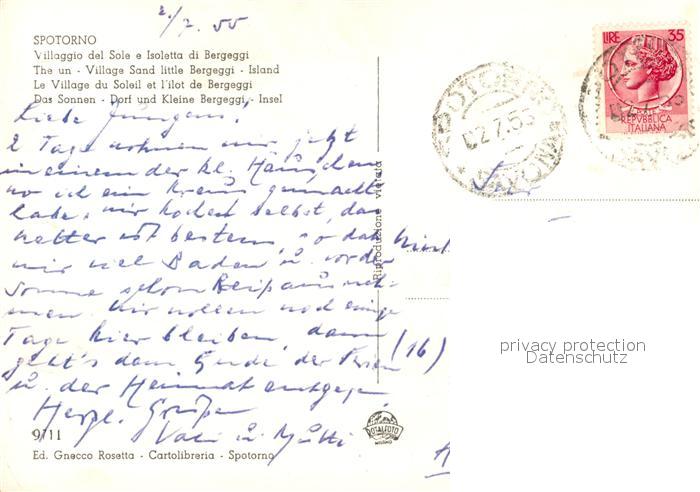 2/7.55
SPOTORNO
Villaggio del Sole e Isoletta di Bergeggi
The un - Village Sand little Bergeggi - Island
Le Village du Soleil et l'ilot de Bergeggi
Das Sonnen - Dorf und Kleine Bergeggi - Insel
LIRE 35
REPVBBLICA
ITALIANA
SPOTORNO
02.7.55
Liebe Jungens!
2 Tage wohnen wir jetzt
in einem der kl. Häuschen
wo ich ein Kreuz gemacht
habe, wir kochen selbst, das
Wetter ist bestens, so daß
wir viel Baden u. von der
Sonne schon
Wir wollen noch einige
Tage hier bleiben, dann
geht's dem Ende der Ferien
u. der Heimat entgegen.
Herzl. Grüße
Vati u. Mutti
(16)
Riproduzione vietata
9/11
Ed. Gnecco Rosetta - Cartolibreria - Spotorno
ROTALFOTO
MILANO
privacy protection
Datenschutz